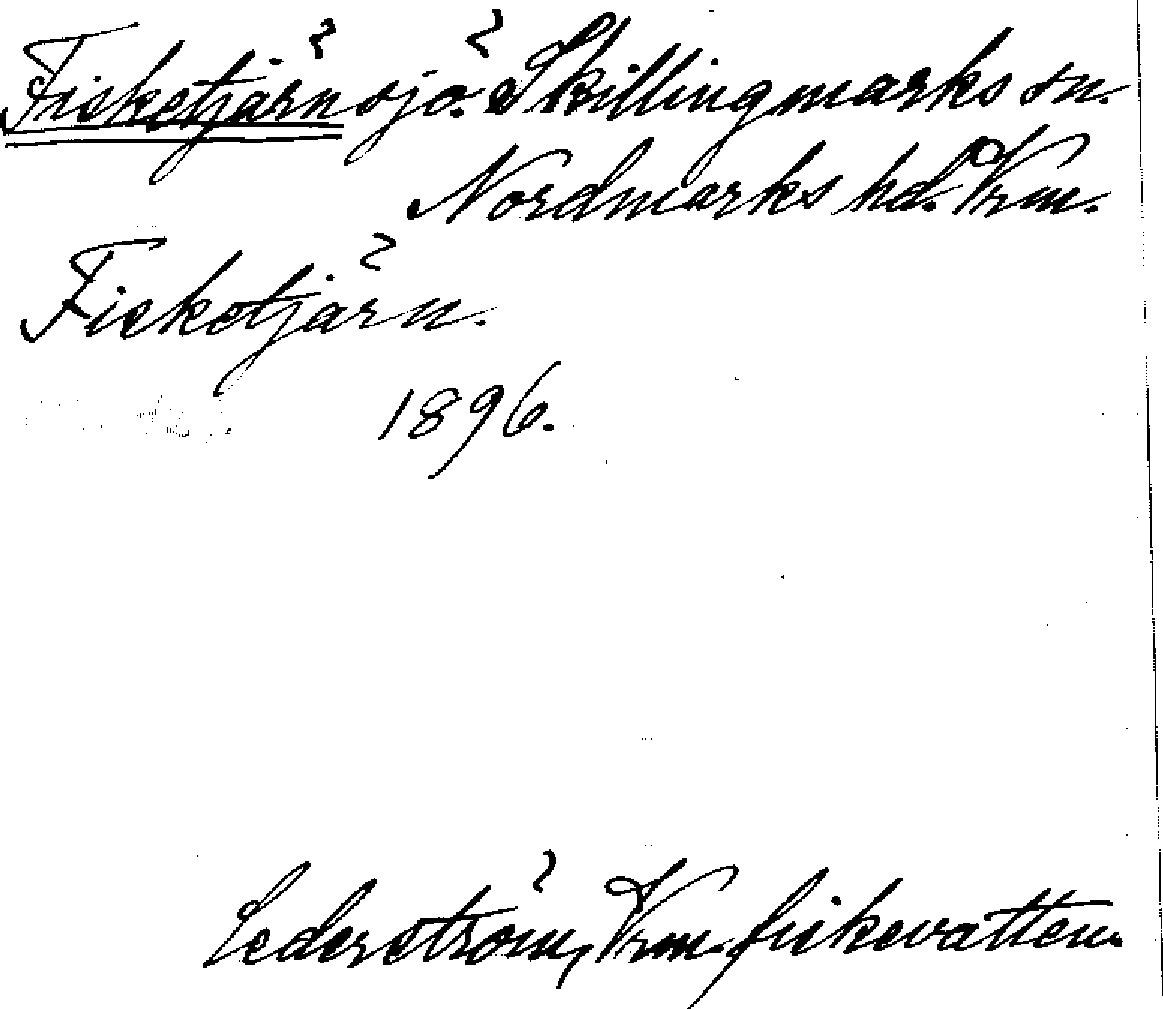 Fisketjärn sjö. Skillingmarks sn.
Nordmarks hd. Vrm.
Fisketjärn.
1896.
Cederström, Vrm. fiskevatten.